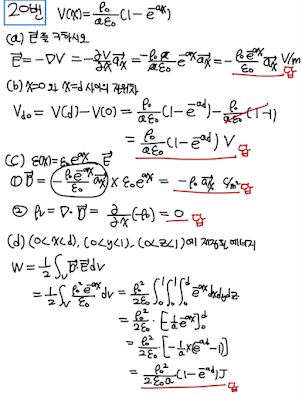 20번 V(x)=ρ₀/(aε₀) (1-e^-ax)
(a) E를 구하시오
E = -∇V = -∂V/∂x aₓ = -ρ₀a/(aε₀) e^-ax aₓ = -ρ₀e^-ax/ε₀ aₓ V/m 답
(b) x=0 와 x=d 사이의 전위차
V_d0 = V(d)-V(0) = ρ₀/(aε₀) (1-e^-ad) - ρ₀/(aε₀) (1-1)
= ρ₀/(aε₀) (1-e^-ad) V 답
(c) ε(x)=ε₀e^ax E
① D = -ρ₀e^-ax/ε₀ aₓ × ε₀e^ax = -ρ₀ aₓ C/m² 답
② ρᵥ = ∇·D = ∂/∂x (-ρ₀) = 0 답
(d) (0<x<d), (0<y<1), (0<z<1)에 저장된 에너지
W = 1/2 ∫ᵥ D·E dv
= 1/2 ∫ᵥ ρ₀²e^-ax/ε₀ dv = ρ₀²/2ε₀ ∫₀¹∫₀¹∫₀^d e^-ax dxdydz
= ρ₀²/2ε₀ · [-1/a e^-ax]₀^d
= ρ₀²/2ε₀ · [-1/a × (e^-ad - 1)]
= ρ₀²/2ε₀a (1-e^-ad) J 답